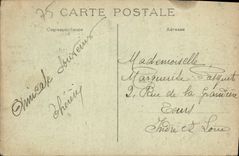 CARTE POSTALE
Correspondance
Adresse
Amicale Souvenir
Thérèse
Mademoiselle
Marguerite Pasquet
2, Rue de la
Tours
Indre et Loire